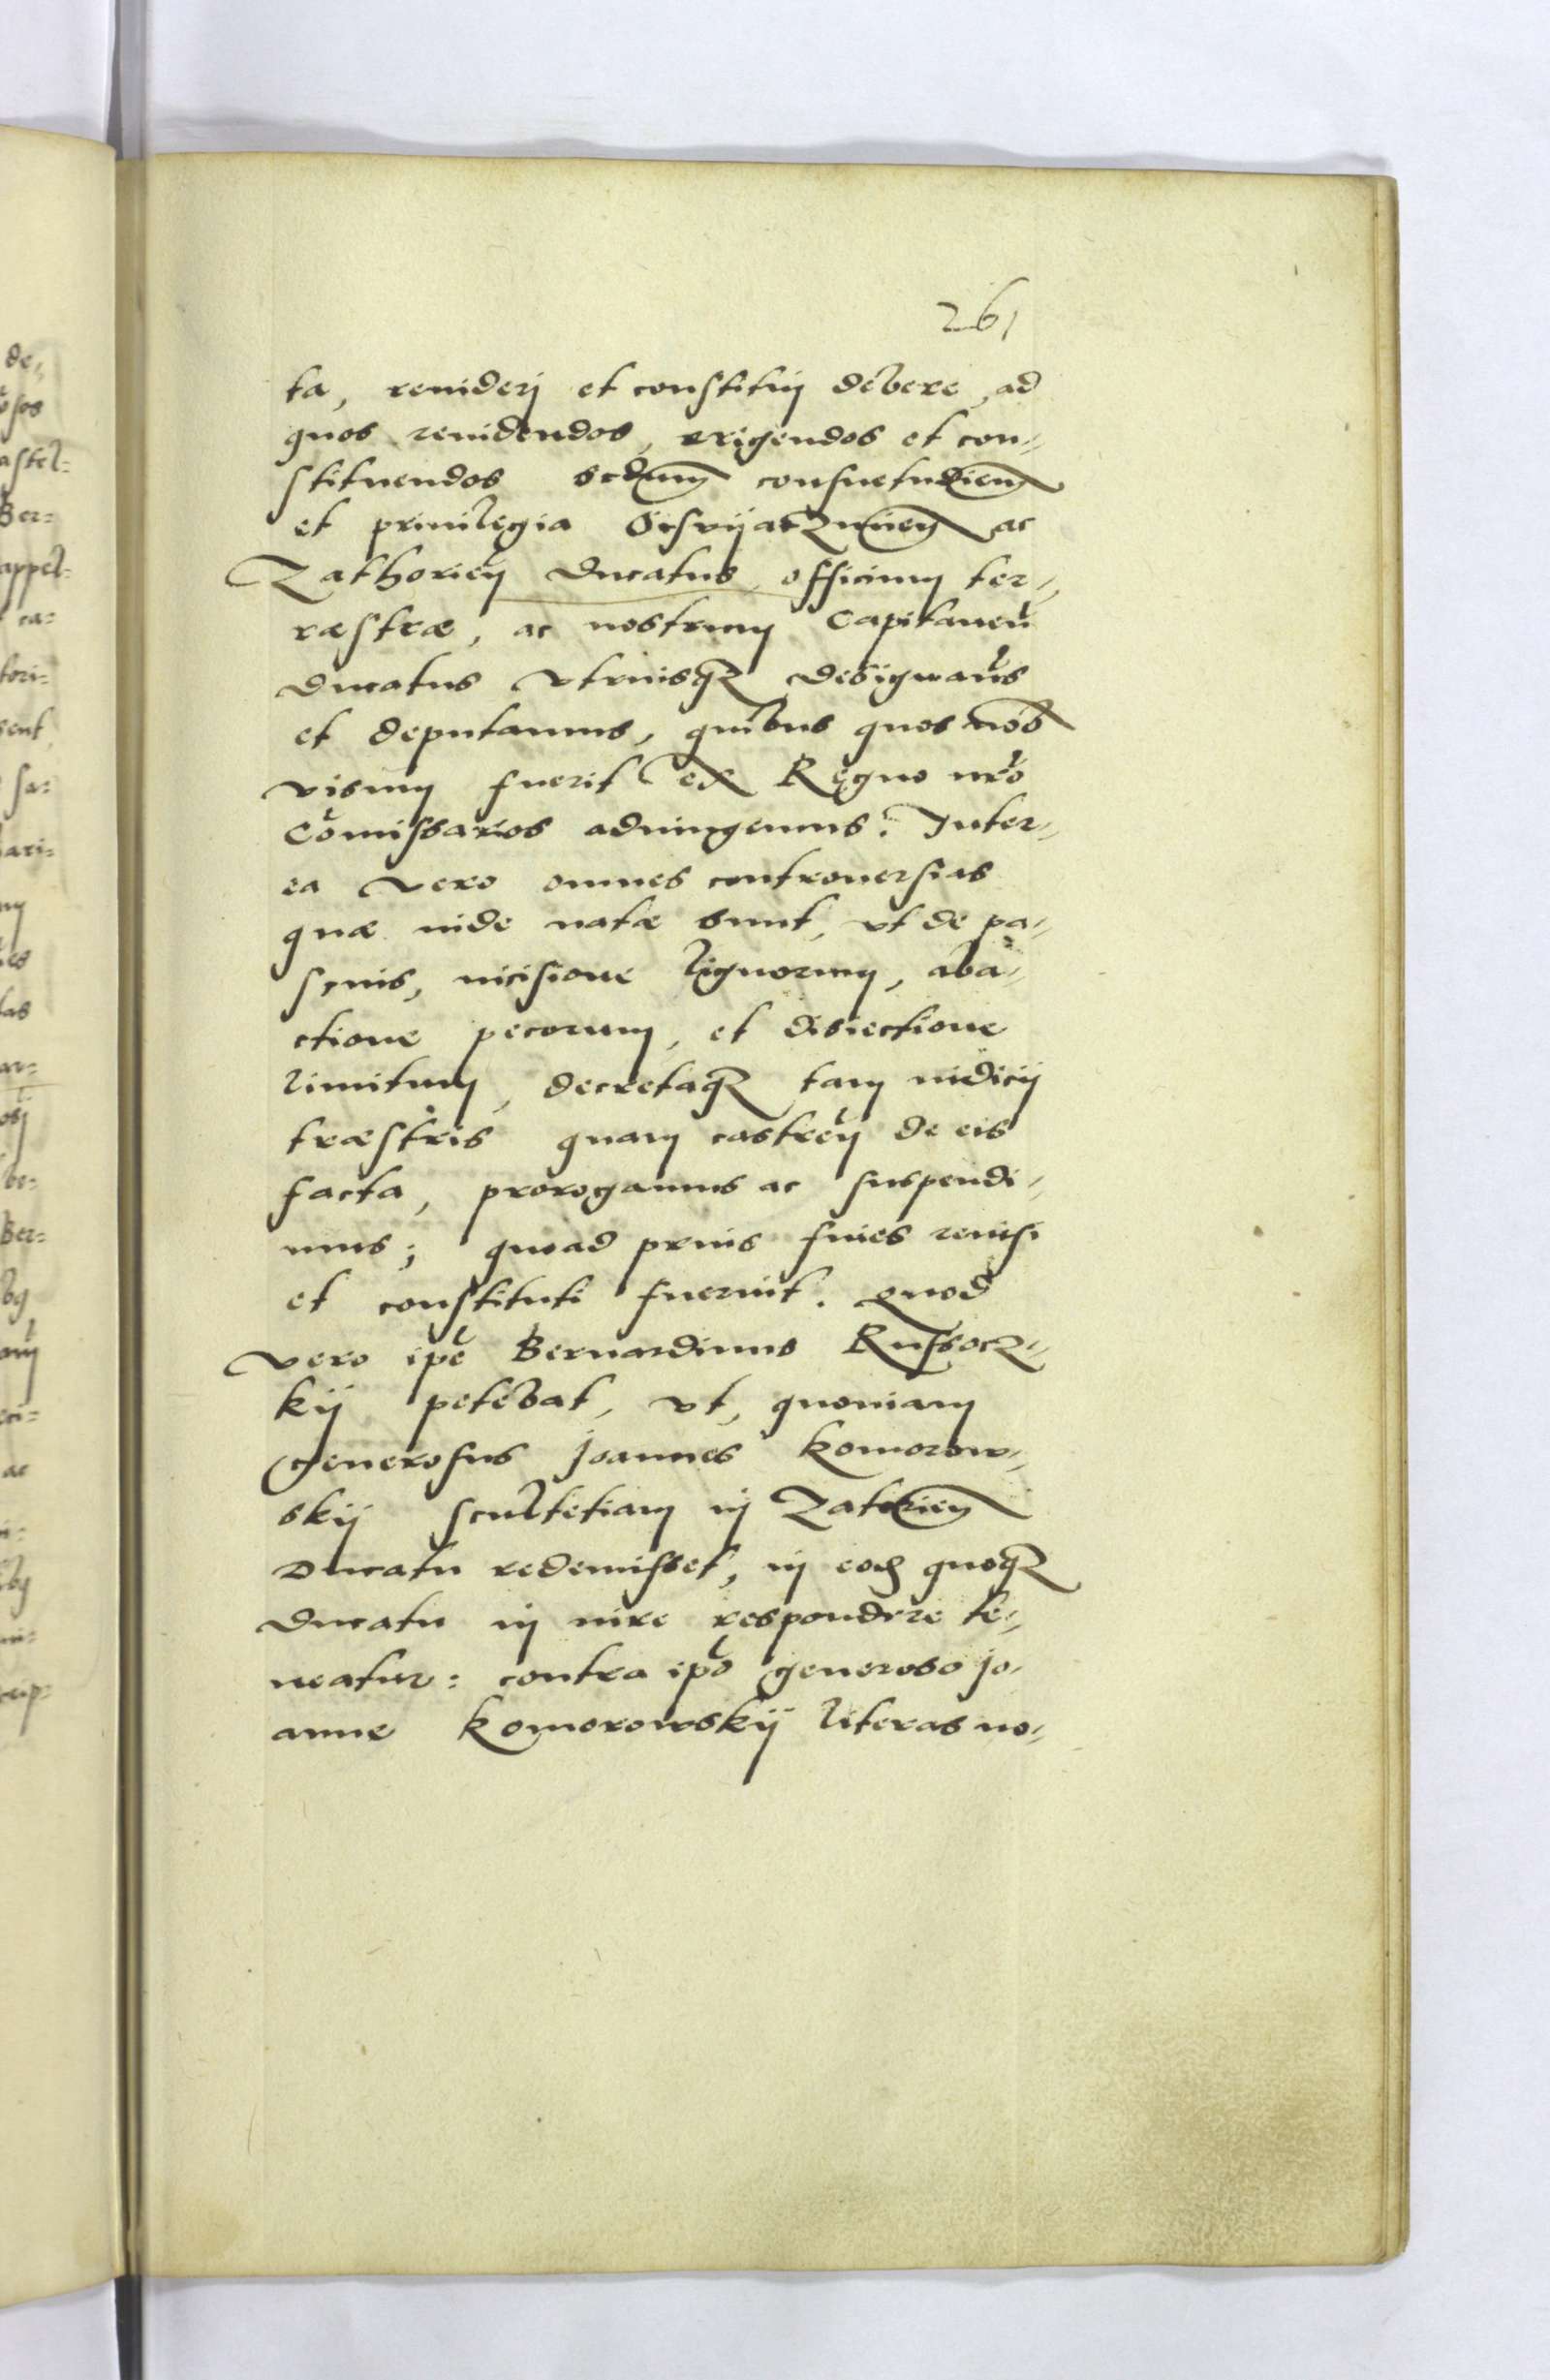 261
ta, reuiderj et constituj debere, ad
quos reuidendos, erigendos et con-
stituendos scdum consuetudiem
et priuilegia Osvijaczimen ac
Zathorien Ducatus, officium ter-
ræstræ, ac nostrum Capitaneu
Ducatus vtriusq3 designams
et deputamus, quibus quos nob
visum fuerit ex Regno nro
Comissarios adiungemus. Inter-
ea vero omnes controuersias
quæ inde natæ sunt, vt de pa-
scuis, incisione lignorum, aba-
ctione pecorum, et disiectione
limitum, decretaq3 tam iudicij
træstris quam castren de eis
facta, prorogamus ac suspendi-
mus; quoad prius fines reuisi
et constituti fuerint. Quod
vero ipe Bernardinus Russocz-
kij petebat, vt, quoniam
Generosus Joannes Komorow-
skij scultetiam in Zatorien
Ducatu redemisset, in eod quoq3
Ducatu in iure respondere te-
neatur: contra ipo Generoso Jo-
anne Komorowskij literas no-
de-
astel-
Ber-
appel-
ca-
tori-
sent
sa-
lari-
las
Ber-
ac